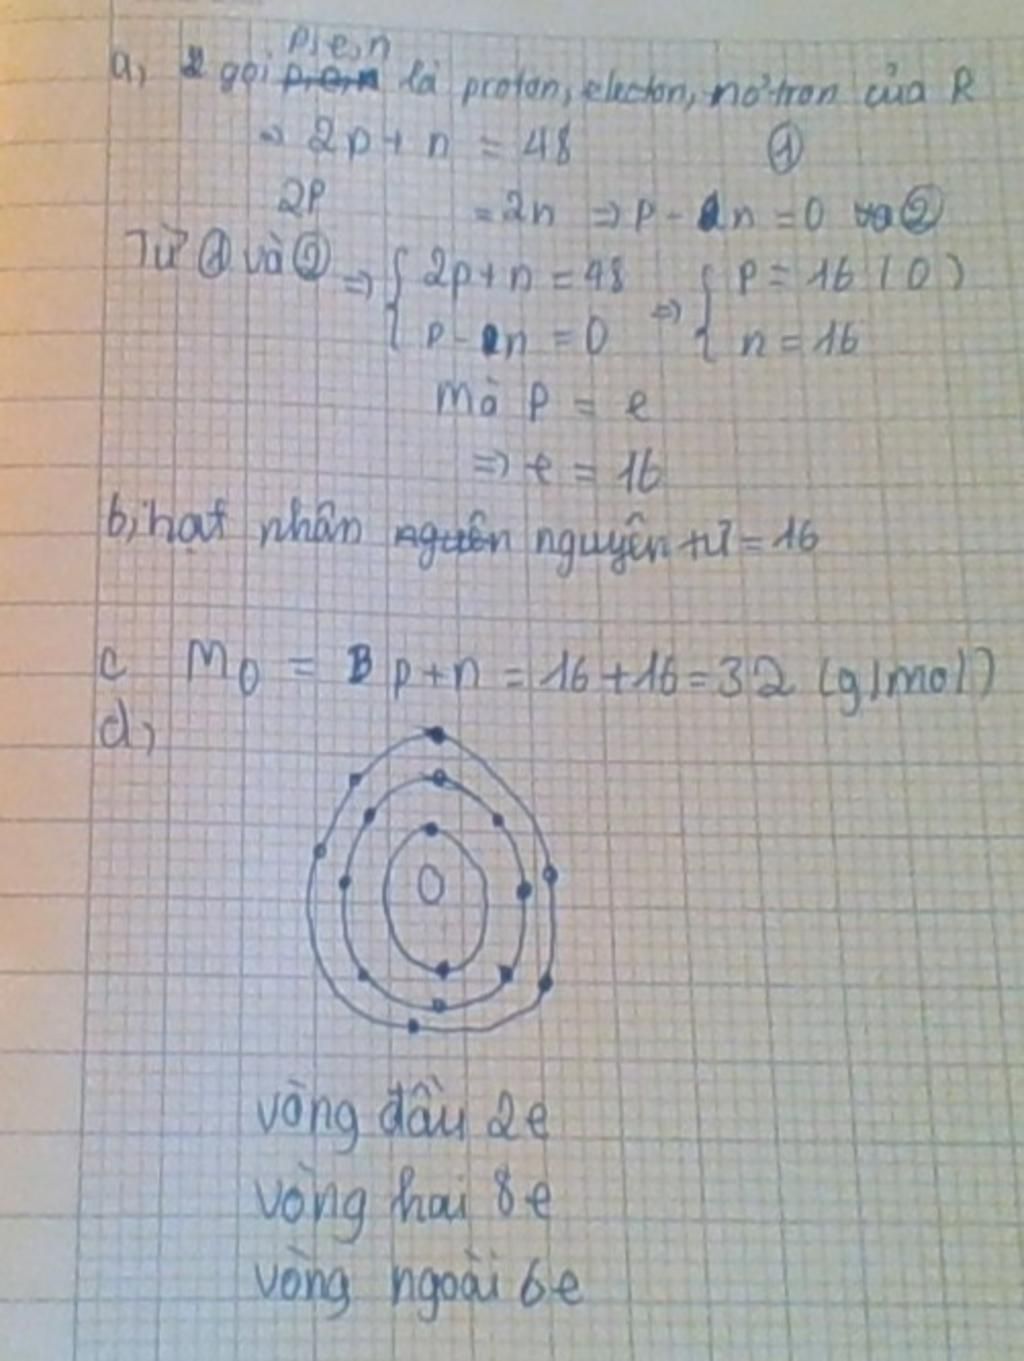 p, e, n
a, gọi p, e, n là proton, electon, nơtron của R
⇒ 2p + n = 48 ①
2p = 2n ⇒ p - n = 0 ②
Từ ① và ② ⇒ { 2p + n = 48 ⇒ { p = 16 ( O )
p - n = 0 n = 16
mà p = e
⇒ e = 16
b, hạt nhân nguyên tử = 16
c MO = p + n = 16 + 16 = 32 (g/mol)
d,
vòng đầu 2e
vòng hai 8e
vòng ngoài 6e